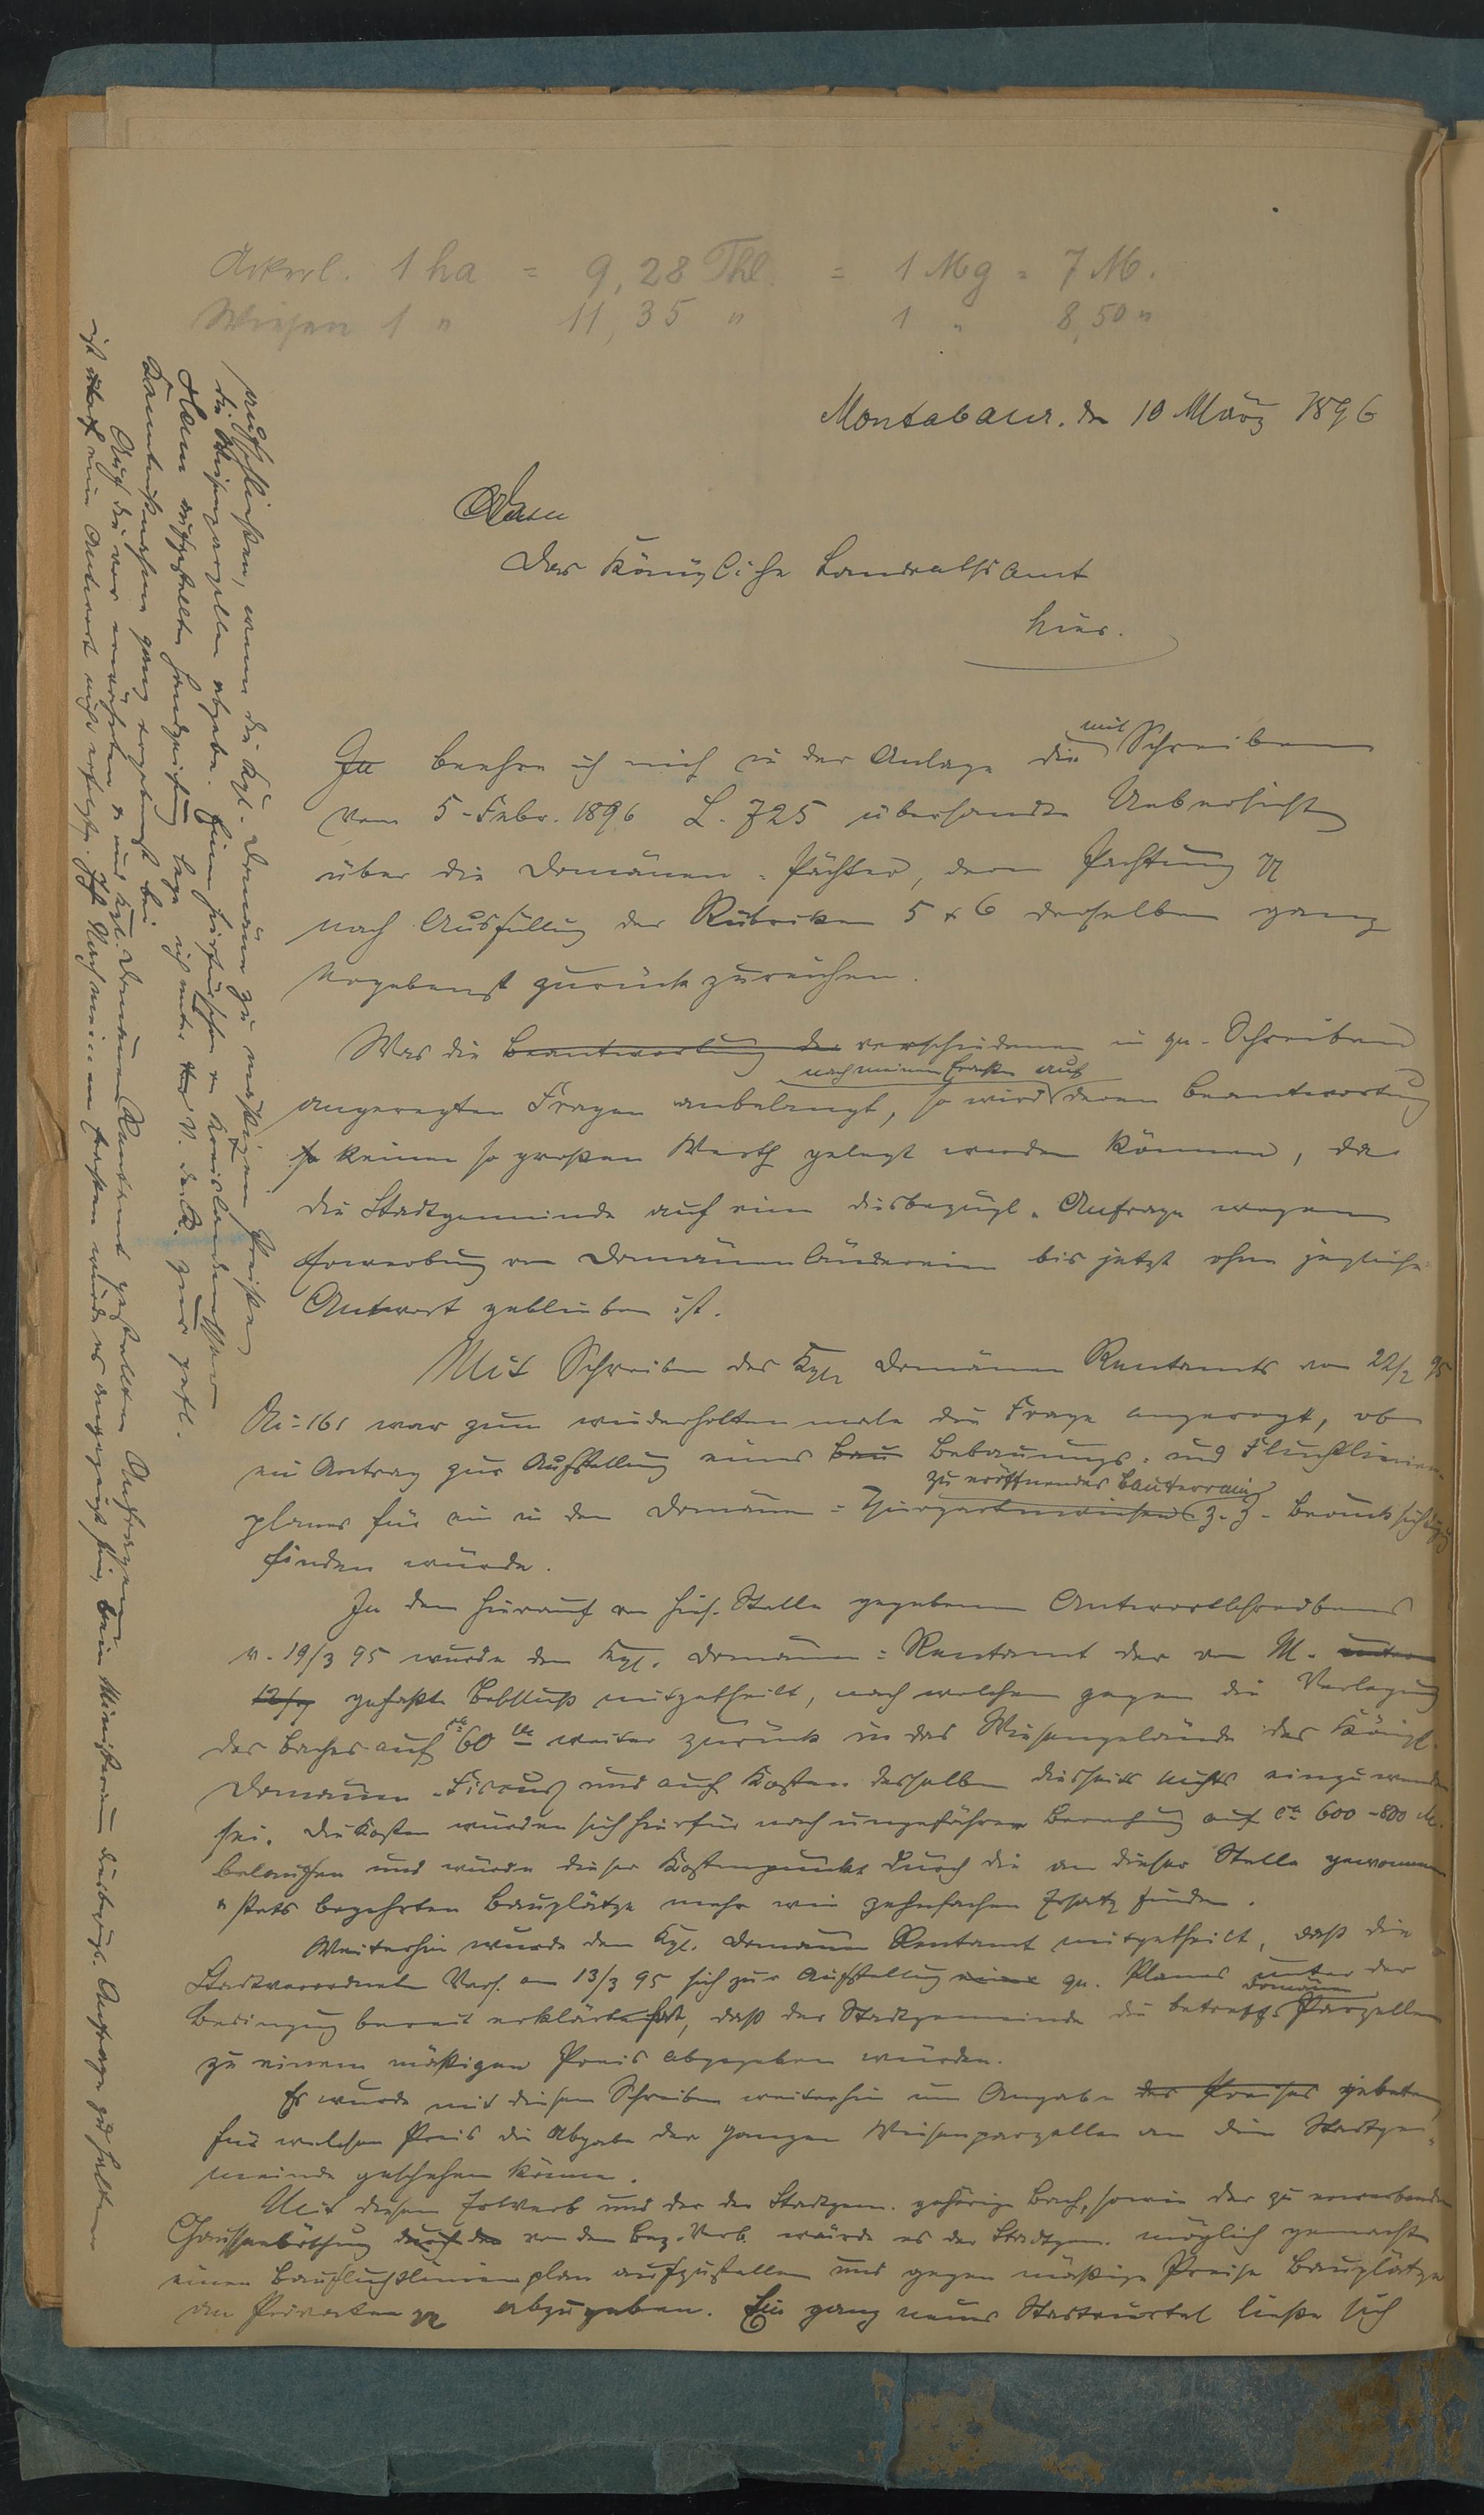 Ackerl. 1 ha = 9,28 Thl. = 1 Mg = 7 M.
Wiesen 1 " 11,35 " 1 " 8,50 "
Montabaur. den 10 März 1896
An
Das Königliche Landrathsamt
hier.
In beehre ich mich in der Anlage die mit Schreiben
vom 5. Febr. 1896 L. 725 übersandte Uebersicht
über die Domänen-Pächter, deren Pachtung
nach Ausfüllung der Rubriken 5 & 6 derselben ganz
ergebenst zurückzureichen.
Was die Beantwortung der verschiedenen in qu. Schreiben
nach meinem Erachten auf
angeregten Fragen anbelangt, so wird deren Beantwortung
so keinen so großen Werth gelegt werden können, da
die Stadtgemeinde auf eine diesbezügl. Anfrage wegen
Erwerbung von Domänenländereien bis jetzt ohne jegliche
Antwort geblieben ist.
Mit Schreiben des Kgl. Domänen Rentamts vom 22/2 95
No 161 war zum wiederholtenmale die Frage angeregt, ob
ein Antrag zur Aufstellung eines Bau Bebauungs- und Fluchtlinien-
zu eröffnendes Bauterrain
planes für ein in den Domänen-Thiergartenwiesen z. Z. Berücksichtigung
finden würde.
In dem hierauf von hies. Stelle gegebenen Antwortschreibens
v. 19/3 95 wurde dem Kgl. Domänen-Rentamt der vom M. unterm
12/3 gefaßte Beschluß mitgetheilt, nach welchem gegen die Verlegung
des Baches auf ca 60 m weiter zurück in das Wiesengelände des Königl.
Domänen-Fiscus und auf Kosten desselben diesseits nichts einzuwenden
sei. Die Kosten würden sich hierfür nach ungefährer Berechnung auf ca 600-800 M.
belaufen und würde dieser Kostenpunkt durch die an dieser Stelle gewonnenen
u stets begehrten Bauplätze mehr wie zehnfachen Ersatz finden.
Weiterhin wurde dem Kgl. Domänen Rentamt mitgetheilt, daß die
Stadtverordneten Vers. am 13/3 95 sich zur Aufstellung eines qu. Planes unter der
Domänen
Bedingung bereit erklärt hat, daß der Stadtgemeinde die betreffs Parzellen
zu einem mäßigen Preis abgegeben würden.
Es wurde mit diesem Schreiben weiterhin um Angabe des Preises gebeten,
für welchen Preis die Abgabe der ganzen Wiesenparzellen an die Stadtge-
meinde geschehen könne.
Mit diesem Erwerb und der der Stadtgem. gehörige Bach, sowie der zu erwerbenden
Chausseeböschung durch den von dem Bez. Verb. würde es der Stadtgem. möglich gemacht
einen Baufluchtlinienplan aufzustellen und gegen mäßige Preise Bauplätze
an Privaten abzugeben. Ein ganz neues Stadtviertel ließe sich
aufschließen, wenn die Kgl. Domäne zu mäßigem Preise
die Wiesenparzellen abgebe. Eine hierfür schon v. Kreislandmesser
Ham aufgestellte Handzeichnung lege ich unter v. der R. zur gefl.
Kenntnißnahme ganz ergebenst bei.
Auf die vor erwähnten u. ans Kgl. Domänen Rentamt gestellten Anfragen
ist auch eine Antwort nicht erfolgt. Nach meinem Erachten würde es angezeigt sein, beim Ministerium diesbezügl. Anfrage zu halten